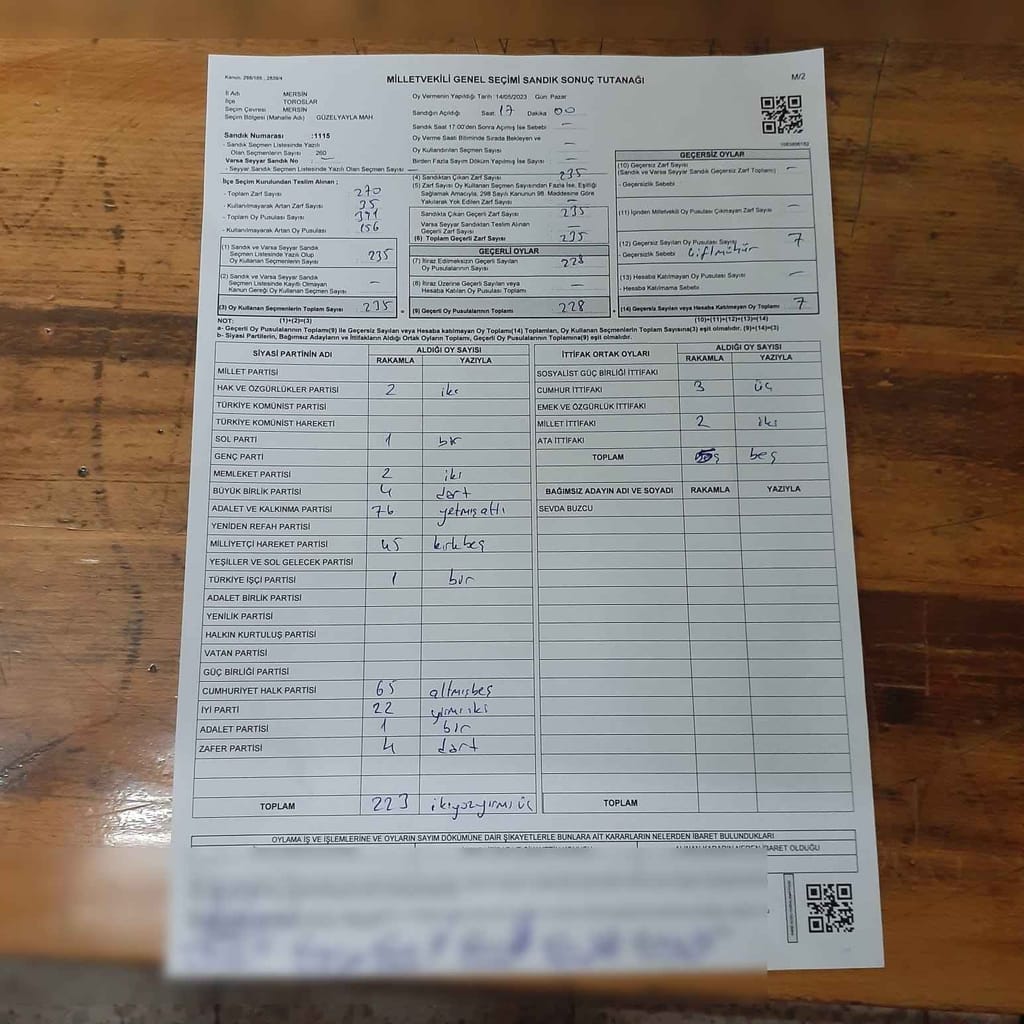 Kanun, 298/105 , 2839/4
MİLLETVEKİLİ GENEL SEÇİMİ SANDIK SONUÇ TUTANAĞI
M/2
İl Adı MERSİN
İlçe TOROSLAR
Seçim Çevresi MERSİN
Seçim Bölgesi (Mahalle Adı) GÜZELYAYLA MAH
Oy Vermenin Yapıldığı Tarih :14/05/2023 Gün: Pazar
Sandığın Açıldığı Saat 17 Dakika 00
Sandık Saat 17:00'den Sonra Açılmış İse Sebebi —
Oy Verme Saati Bitiminde Sırada Bekleyen ve
Oy Kullandırılan Seçmen Sayısı —
Birden Fazla Sayım Döküm Yapılmış İse Sayısı —
Sandık Numarası :1115
- Sandık Seçmen Listesinde Yazılı
Olan Seçmenlerin Sayısı 260
Varsa Seyyar Sandık No : —
- Seyyar Sandık Seçmen Listesinde Yazılı Olan Seçmen Sayısı —
İlçe Seçim Kurulundan Teslim Alınan ;
- Toplam Zarf Sayısı 270
- Kullanılmayarak Artan Zarf Sayısı 35
- Toplam Oy Pusulası Sayısı 391
- Kullanılmayarak Artan Oy Pusulası 156
(1) Sandık ve Varsa Seyyar Sandık
Seçmen Listesinde Yazılı Olup
Oy Kullanan Seçmenlerin Sayısı 235
(2) Sandık ve Varsa Seyyar Sandık
Seçmen Listesinde Kaydı Olmayan
Kanun Gereği Oy Kullanan Seçmen Sayısı —
(3) Oy Kullanan Seçmenlerin Toplam Sayısı 235
(1)+(2)=(3)
(4) Sandıktan Çıkan Zarf Sayısı 235
(5) Zarf Sayısı Oy Kullanan Seçmen Sayısından Fazla İse, Eşitliği
Sağlamak Amacıyla, 298 Sayılı Kanunun 98. Maddesine Göre
Yakılarak Yok Edilen Zarf Sayısı —
Sandıkta Çıkan Geçerli Zarf Sayısı 235
Varsa Seyyar Sandıktan Teslim Alınan
Geçerli Zarf Sayısı —
(6) Toplam Geçerli Zarf Sayısı 235
GEÇERLİ OYLAR
(7) İtiraz Edilmeksizin Geçerli Sayılan
Oy Pusulalarının Sayısı 228
(8) İtiraz Üzerine Geçerli Sayılan veya
Hesaba Katılan Oy Pusulası Toplamı —
(9) Geçerli Oy Pusulalarının Toplamı 228
GEÇERSİZ OYLAR
(10) Geçersiz Zarf Sayısı
(Sandık ve Varsa Seyyar Sandık Geçersiz Zarf Toplamı) —
- Geçersizlik Sebebi
(11) İçinden Milletvekili Oy Pusulası Çıkmayan Zarf Sayısı —
(12) Geçersiz Sayılan Oy Pusulası Sayısı 7
- Geçersizlik Sebebi Çift mühür
(13) Hesaba Katılmayan Oy Pusulası Sayısı —
- Hesaba Katılmama Sebebi
(14) Geçersiz Sayılan veya Hesaba Katılmayan Oy Toplamı 7
(10)+(11)+(12)+(13)=(14)
NOT:
a- Geçerli Oy Pusulalarının Toplamı(9) ile Geçersiz Sayılan veya Hesaba katılmayan Oy Toplamı(14) Toplamları, Oy Kullanan Seçmenlerin Toplam Sayısına(3) eşit olmalıdır. (9)+(14)=(3)
b- Siyasi Partilerin, Bağımsız Adayların ve İttifakların Aldığı Ortak Oyların Toplamı, Geçerli Oy Pusulalarının Toplamına(9) eşit olmalıdır.
SİYASİ PARTİNİN ADI ALDIĞI OY SAYISI
RAKAMLA YAZIYLA
MİLLET PARTİSİ
HAK VE ÖZGÜRLÜKLER PARTİSİ 2 iki
TÜRKİYE KOMÜNİST PARTİSİ
TÜRKİYE KOMÜNİST HAREKETİ
SOL PARTİ 1 bir
GENÇ PARTİ
MEMLEKET PARTİSİ 2 iki
BÜYÜK BİRLİK PARTİSİ 4 dört
ADALET VE KALKINMA PARTİSİ 76 yetmişaltı
YENİDEN REFAH PARTİSİ
MİLLİYETÇİ HAREKET PARTİSİ 45 kırkbeş
YEŞİLLER VE SOL GELECEK PARTİSİ
TÜRKİYE İŞÇİ PARTİSİ 1 bir
ADALET BİRLİK PARTİSİ
YENİLİK PARTİSİ
HALKIN KURTULUŞ PARTİSİ
VATAN PARTİSİ
GÜÇ BİRLİĞİ PARTİSİ
CUMHURİYET HALK PARTİSİ 65 altmışbeş
İYİ PARTİ 22 yirmiiki
ADALET PARTİSİ 1 bir
ZAFER PARTİSİ 4 dört
TOPLAM 223 ikiyüzyirmiüç
İTTİFAK ORTAK OYLARI ALDIĞI OY SAYISI
RAKAMLA YAZIYLA
SOSYALİST GÜÇ BİRLİĞİ İTTİFAKI
CUMHUR İTTİFAKI 3 üç
EMEK VE ÖZGÜRLÜK İTTİFAKI
MİLLET İTTİFAKI 2 iki
ATA İTTİFAKI
TOPLAM 5 beş
BAĞIMSIZ ADAYIN ADI VE SOYADI RAKAMLA YAZIYLA
SEVDA BUZCU
TOPLAM
OYLAMA İŞ VE İŞLEMLERİNE VE OYLARIN SAYIM DÖKÜMÜNE DAİR ŞİKAYETLERLE BUNLARA AİT KARARLARIN NELERDEN İBARET BULUNDUKLARI
ALINAN KARARIN NEDEN İBARET OLDUĞU